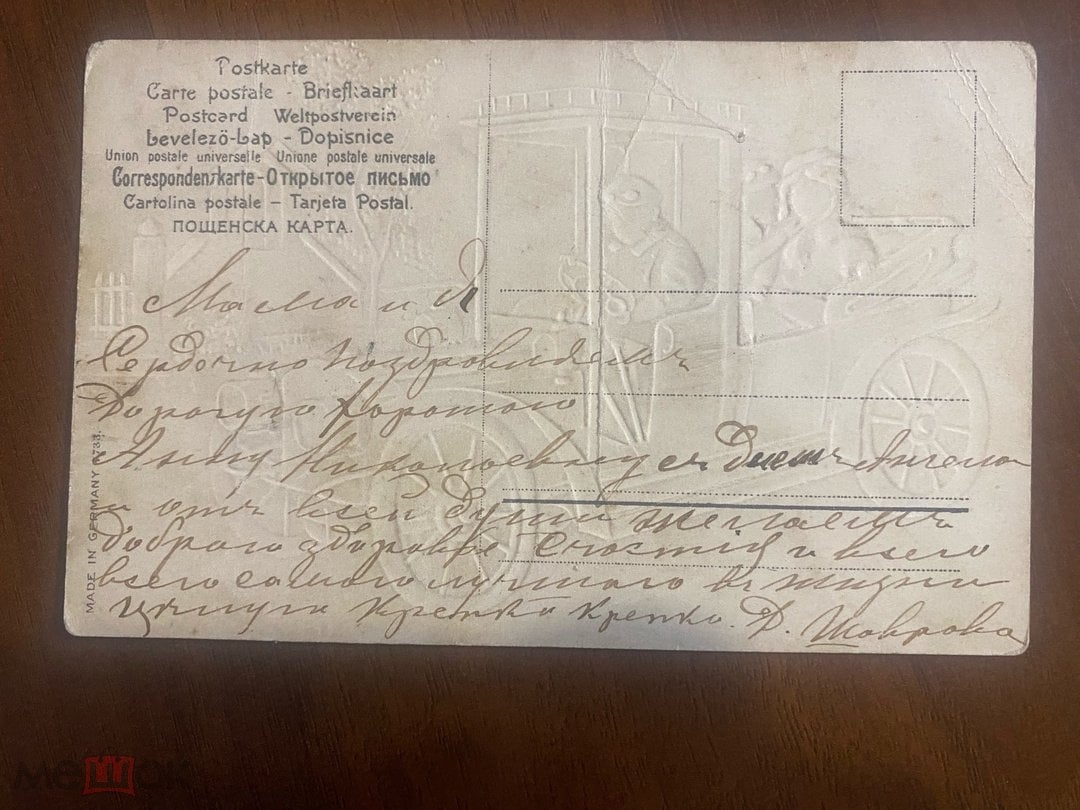 Postkarte
Carte postale - Briefkaart
Postcard Weltpostverein
Levelező-Lap - Dopisnice
Union postale universelle Unione postale universale
Correspondenzkarte-Открытое письмо
Cartolina postale - Tarjeta Postal.
ПОЩЕНСКА КАРТА.
Мама и Я
Сердечно поздровляемъ
Дорогую
Анну Николаевну съ Днемъ Ангела
и отъ всей души желаемъ
доброго здоровье счастія и всего
всего самого лучшаго въ жизни
Цѣлую Крепко Крепко. Д. Шаврова
MADE IN GERMANY
мешок